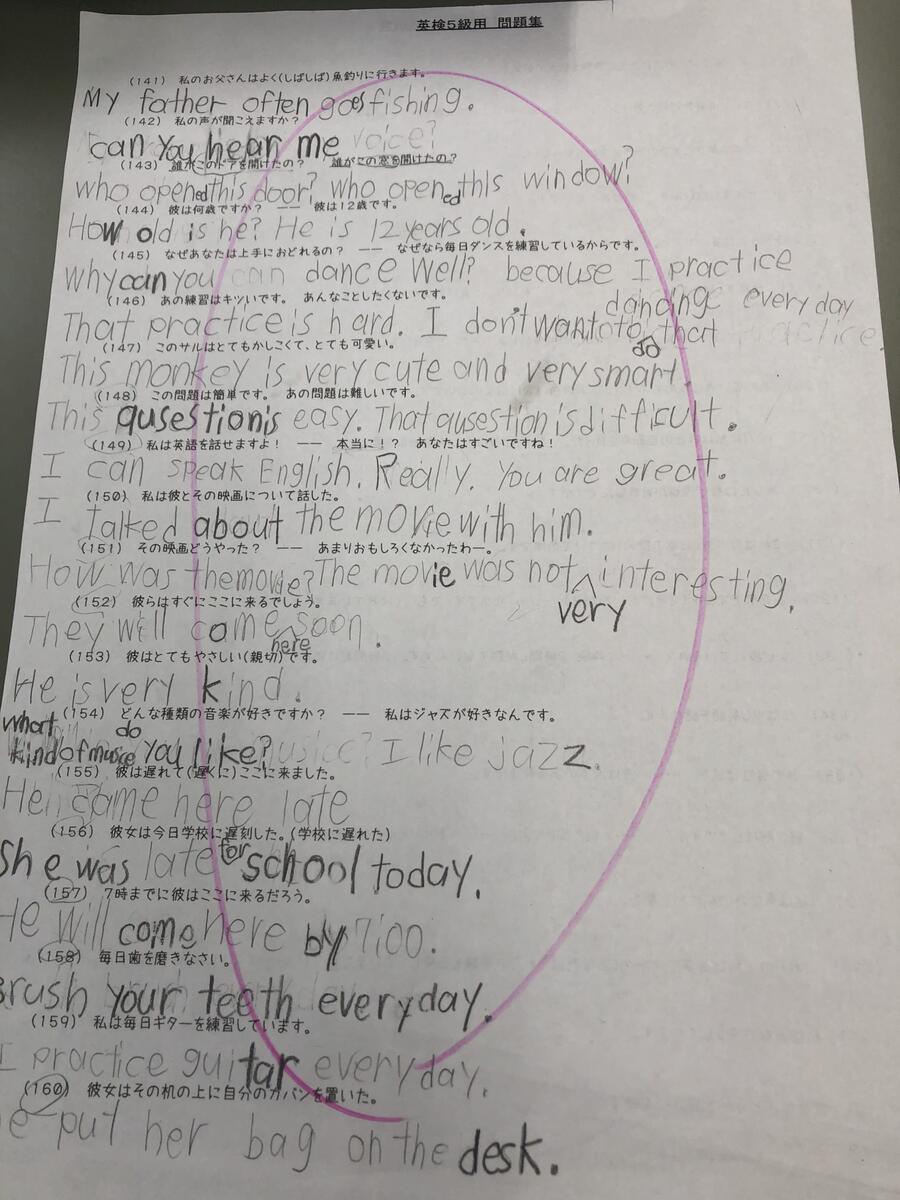 英検5級用 問題集
(141) 私のお父さんはよく(しばしば)魚釣りに行きます。
My father often goes fishing.
(142) 私の声が聞こえますか？
can you hear me voice?
(143) 誰がこのドアを開けたの？ 誰がこの窓を開けたの？
who opened this door? who opened this window?
(144) 彼は何歳ですか？ ―― 彼は12歳です。
How old is he? He is 12 years old.
(145) なぜあなたは上手におどれるの？ ―― なぜなら毎日ダンスを練習しているからです。
why can you can dance well? because I practice
dancing every day
(146) あの練習はキツいです。 あんなことしたくないです。
That practice is hard. I don't want to do that practice
(147) このサルはとてもかしこくて、とても可愛い。
This monkey is very cute and very smart.
(148) この問題は簡単です。 あの問題は難しいです。
This qusestion is easy. That qusestion is difficult.
(149) 私は英語を話せますよ！ ―― 本当に！？ あなたはすごいですね！
I can speak English. Really. You are great.
(150) 私は彼とその映画について話した。
I talked about the movie with him.
(151) その映画どうやった？ ―― あまりおもしろくなかったわー。
How was the movie? The movie was not very interesting.
(152) 彼らはすぐにここに来るでしょう。
They will come here soon.
(153) 彼はとてもやさしい(親切)です。
He is very kind.
(154) どんな種類の音楽が好きですか？ ―― 私はジャズが好きなんです。
what kind of musce do you like? I like jazz.
(155) 彼は遅れて(遅くに)ここに来ました。
He came here late
(156) 彼女は今日学校に遅刻した。(学校に遅れた)
she was late for school today.
(157) 7時までに彼はここに来るだろう。
He will come here by 7:00.
(158) 毎日歯を磨きなさい。
Brush your teeth everyday.
(159) 私は毎日ギターを練習しています。
I practice guitar everyday.
(160) 彼女はその机の上に自分のカバンを置いた。
e put her bag on the desk.